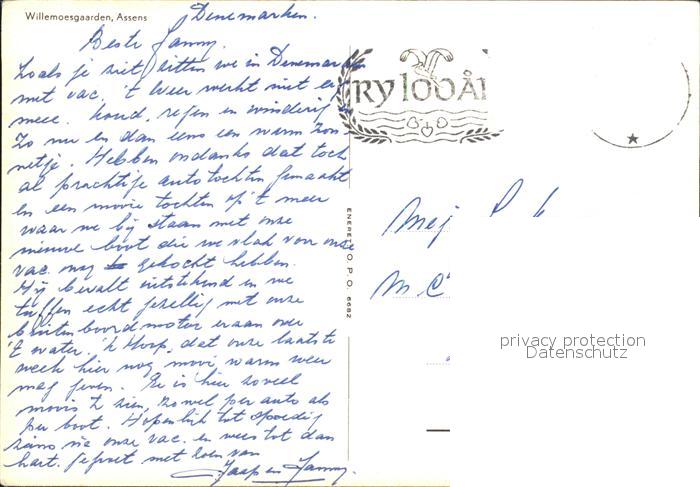 Willemoesgaarden, Assens
Denemarken.
Beste Janny.
Zoals je ziet zitten we in Denemarken
met vac. 't Weer werkt niet erg
mee. koud, regen en winderig.
Zo nu en dan eens een warm zon
netje. Hebben ondanks dat toch
al prachtige autotochten gemaakt
en een mooie tochten op 't meer
waar we bij staan met onze
nieuwe boot die we vlak voor onze
vac. nog gekocht hebben.
Hij bevalt uitstekend en we
tuffen echt gezellig met onze
buitenboordmotor eraan over
't water. 'k Hoop, dat onze laatste
week hier nog mooi warm weer
mag geven. Er is hier zoveel
moois te zien, zowel per auto als
per boot. Hopenlijk tot spoedig
ziens na onze vac. en wees tot dan
hart. gegroet met zoen van
Jaap en Janny.
RY 100 ÅR
ENERET O.P.O. 6682
Mej P
M.C
privacy protection
Datenschutz